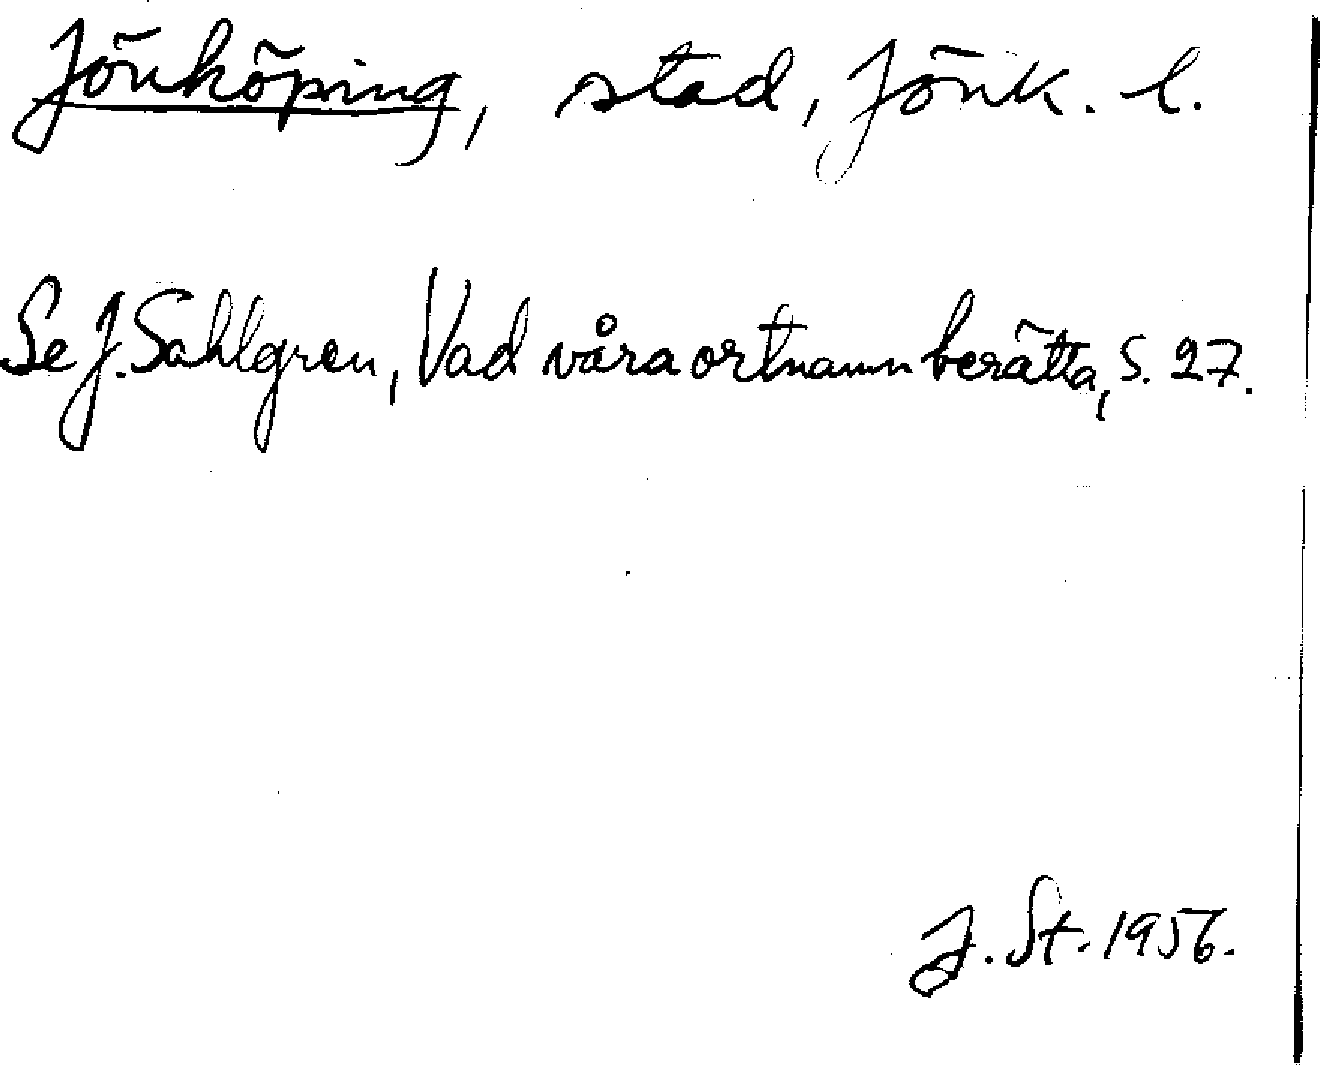 Jönköping, stad, Jönk. l.
Se J. Sahlgren, Vad våra ortnamn berätta, s. 27.
J. St. 1956.